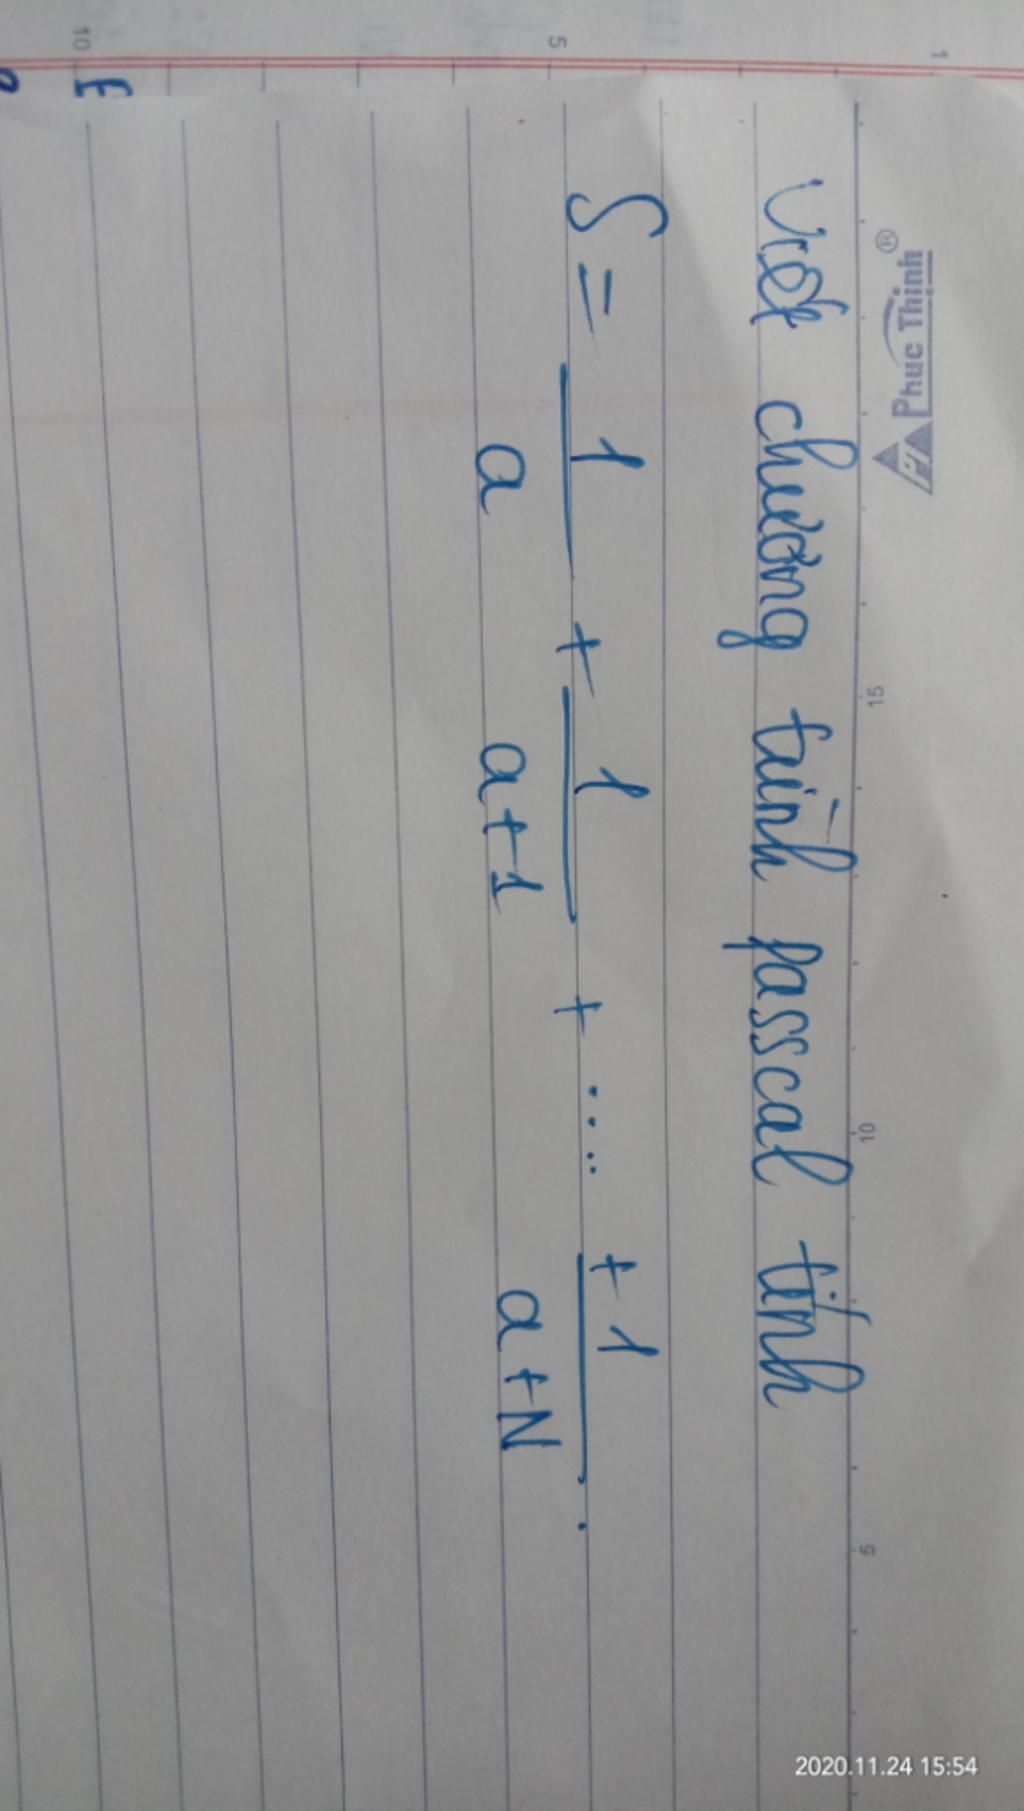 Phuc Thinh®
Viết chương trình passcal tính
S = 1/a + 1/a+1 + .... + 1/a+N .
15
10
5
1
5
10
2020.11.24 15:54